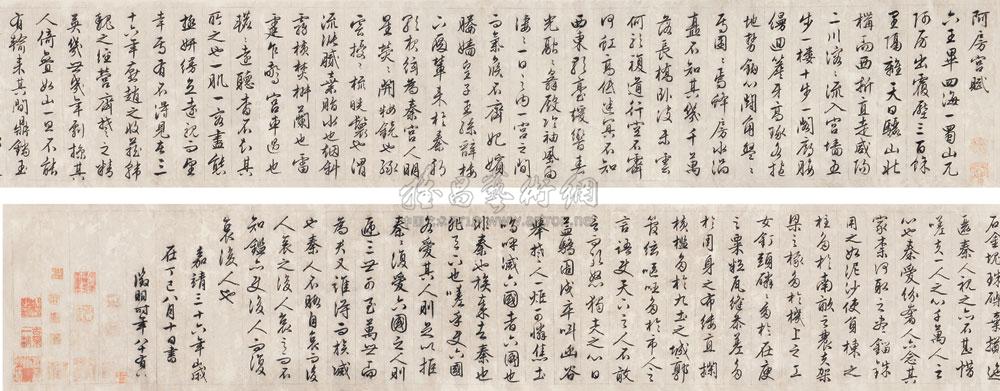 阿房宮賦
六王畢四海一蜀山兀
阿房出覆壓三百餘
里隔離天日驪山北
構而西折直走咸陽
二川溶溶流入宮牆五
步一樓十步一閣廊腰
縵迴簷牙高啄各抱
地勢鈎心鬭角盤盤
焉囷囷焉蜂房水渦
矗不知其幾千萬
落長橋臥波未雲
何龍複道行空不霽
何虹高低迷冥不知
西東歌臺暖響春
光融融舞殿冷袖風雨
淒淒一日之內一宮之間
而氣候不齊妃嬪
媵嬙皇子王孫辭樓
下殿輦來於秦朝
歌夜絃為秦宮人明
星熒熒開妝鏡也綠
雲擾擾梳曉鬟也渭
流漲膩棄脂水也烟斜
霧橫焚椒蘭也雷
霆乍驚宮車過也
轆轆遠聽杳不知其
所之也一肌一容盡態
極妍縵立遠視而望
幸焉有不得見者三
十六年燕趙之收藏韓
魏之經營齊楚之精
英幾世幾年剽掠其
人倚疊如山一旦不能
有輸來其間鼎鐺玉
石金塊珠礫棄擲邐
迤秦人視之亦不甚惜
嗟夫一人之心千萬人之
心也秦愛紛奢人亦念其
家柰何取之盡錙銖
用之如泥沙使負棟之
柱多於南畝之農夫架
梁之椽多於機上之工
女釘頭磷磷多於在庾
之粟粒瓦縫參差多
於周身之帛縷直欄
橫檻多於九土之城郭
管絃嘔啞多於市人之
言語使天下之人不敢
言而敢怒獨夫之心日
益驕固戍卒叫函谷
舉楚人一炬可憐焦土
嗚呼滅六國者六國也
非秦也族秦者秦也
非天下也嗟乎使六國
各愛其人則足以拒
秦秦復愛六國之人則
遞三世可至萬世而
為君又誰得而族滅
也秦人不暇自哀而後
人哀之後人哀之而不
知鑑亦使後人而復
哀後人也
嘉靖三十六年歲
在丁巳八月十日書
徵明時年八十有八